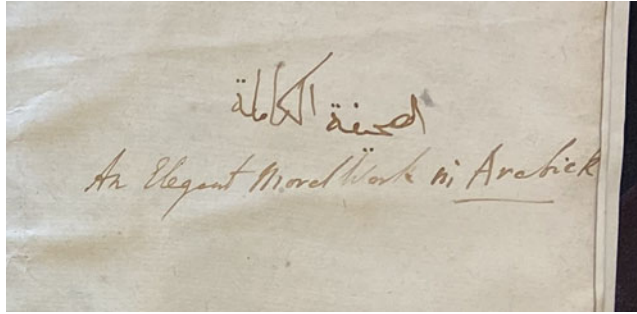 الصحيفة الكاملة
An Elegant Moral Work in Arabick